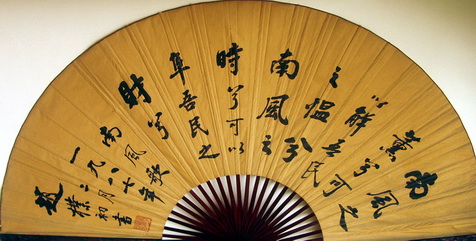 南風之
薰兮可以
解吾民
之愠兮
南風之
時兮可以
阜吾民之
財兮
南風歌
一九八七年
二月
趙樸初書